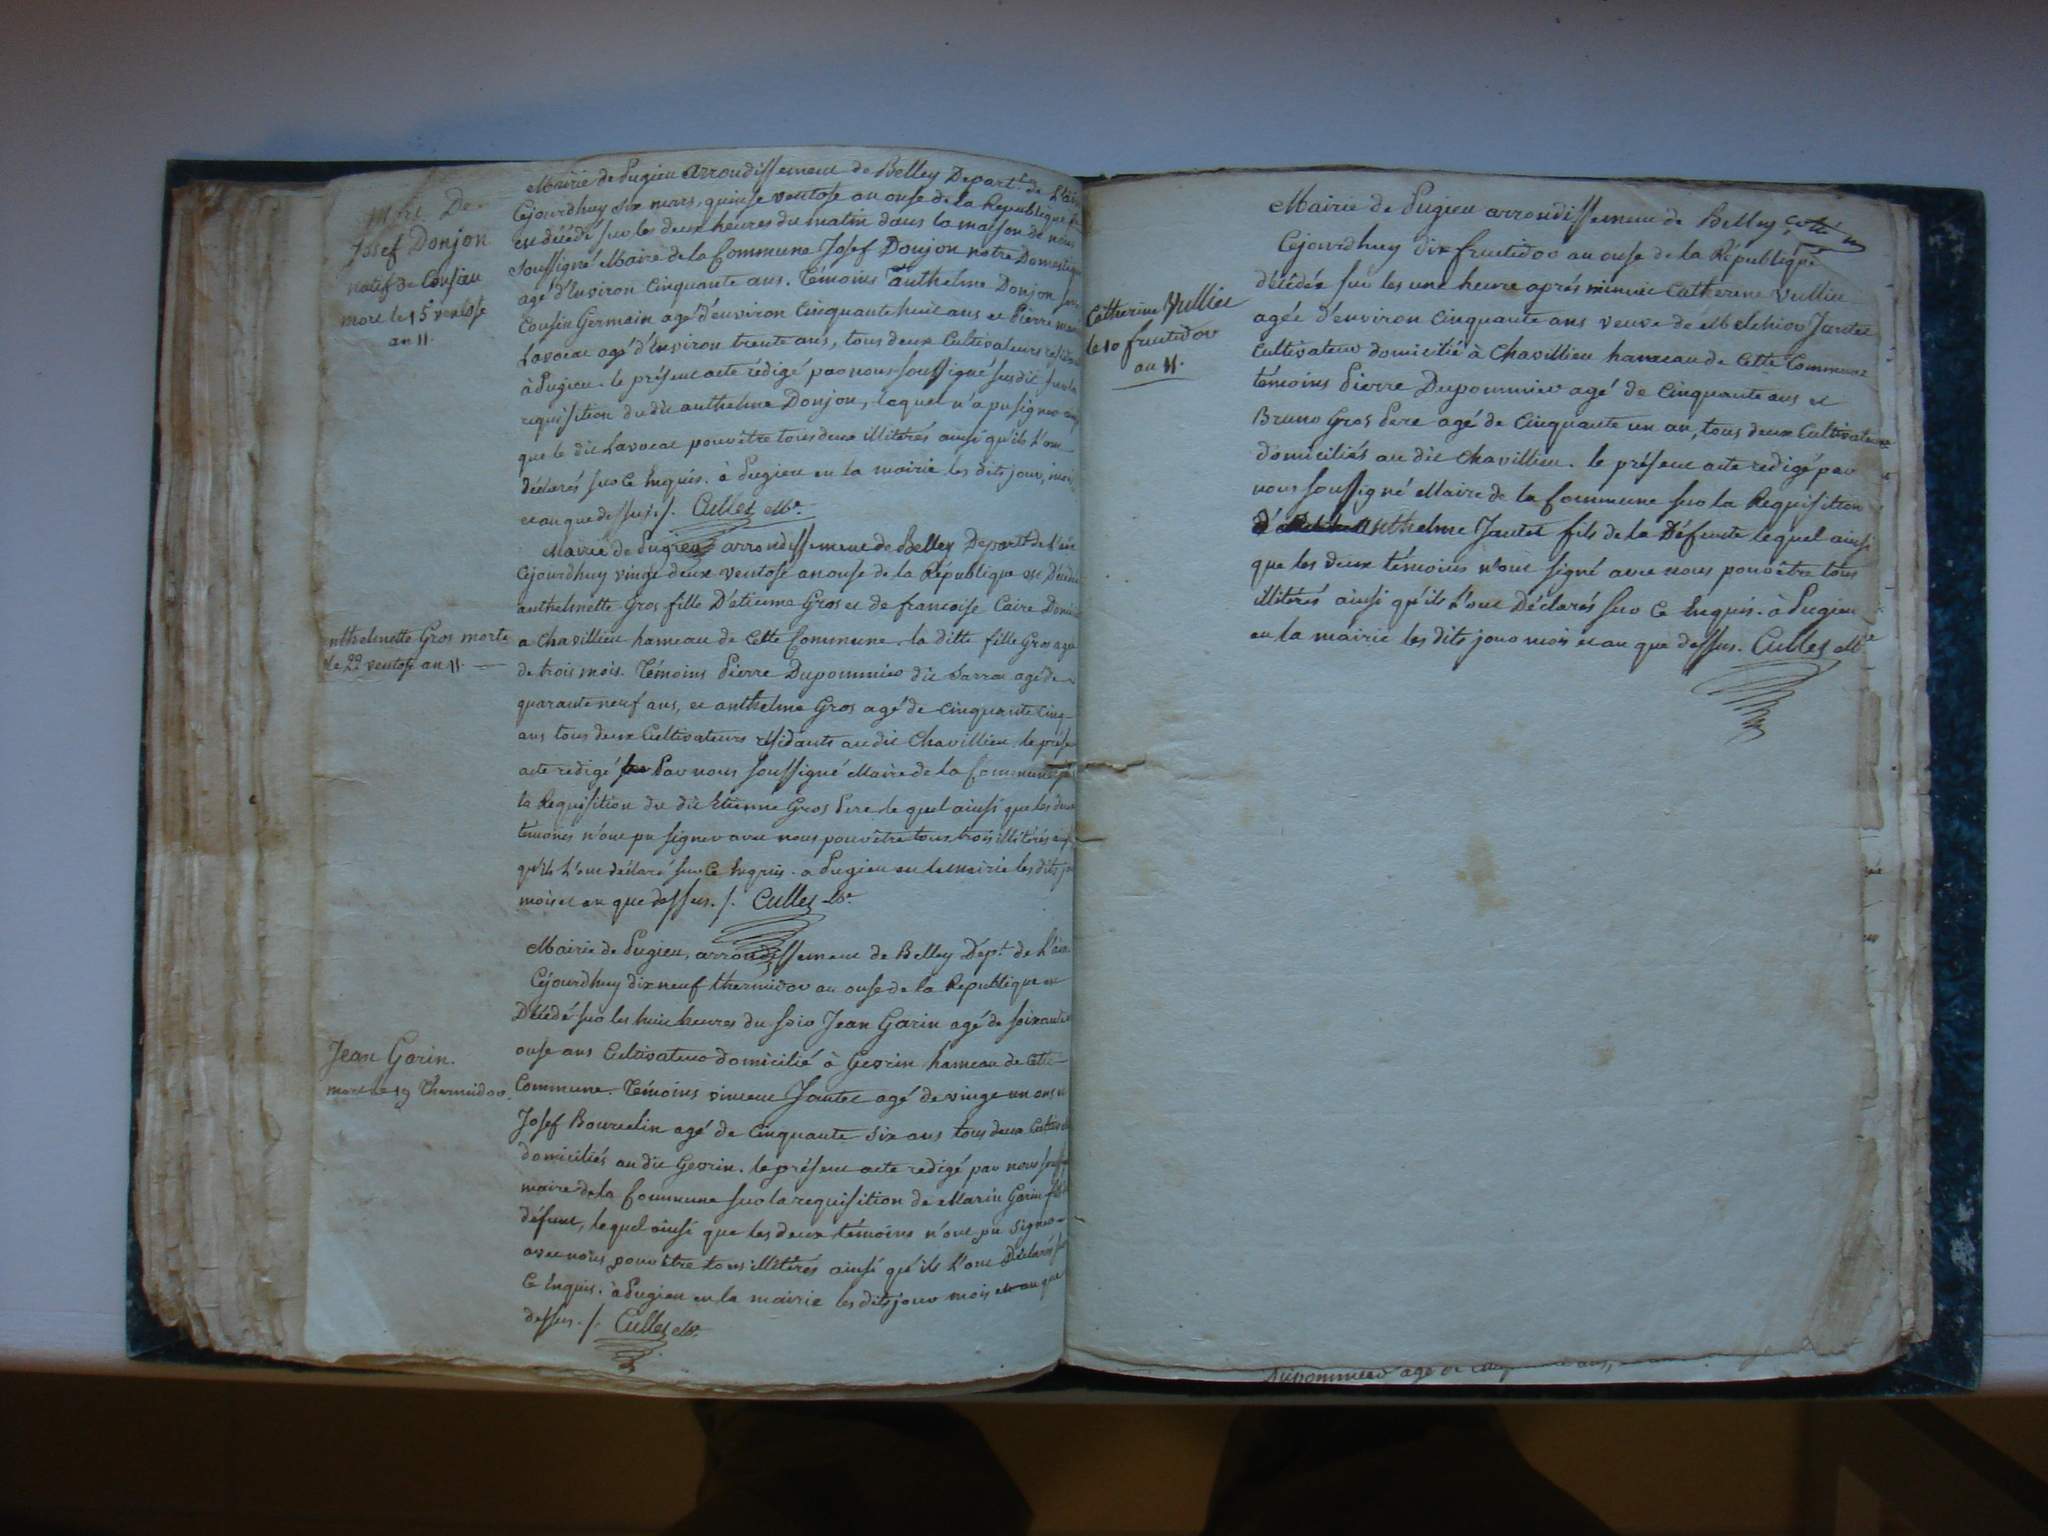 Mort De
Josef Donjon
natif de Consieu
mort le 15 ventose
an 11.
Mairie de Pugieu arrondissement de Belley Depart.t de L'ain
Cejourdhuy six mars, quinse ventose an onse de la Republique
est décédé sur les deux heures du matin dans la maison de nous
soussigné Maire de la Commune Josef Donjon notre Domestique
agé d'Environ Cinquante ans. Témoins anthelme Donjon son
Cousin Germain agé d'environ Cinquante huit ans et Pierre
Lavocat agé d'Environ trente ans, tous deux Cultivateurs
à Pugieu. le présent acte rédigé par nous soussigné susdit sur la
requisition du dit anthelme Donjon, lequel n'a pu signer
que le dit Lavocat pour être tous deux illiterés ainsi qu'ils L'ont
déclarés sur Ce Enquis. à Pugieu en la mairie les dits jour, mois
et an que dessus ./. Cullet M.e
Mairie de Pugieu arrondissement de Belley Depart.t de L'ain
Cejourdhuy vingt deux Ventose an onse de la République est Décédée
anthelmette Gros fille D'etienne Gros et de francoise Caire
a Chavillieu hameau de Cette Commune. la ditte fille Gros agée
nthelmette Gros morte
le 22 ventose an 11.
de trois mois. Témoins Pierre Dupommier dit agé de
quarante neuf ans, et anthelme Gros agé de cinquante cinq
ans tous deux Cultivateurs résidants au dit Chavillieu. le présent
acte redigé par nous soussigné Maire de la Commune
la Requisition du dit Etienne Gros Pere le quel ainsi que les deux
témoins n'ont pu signer avec nous pour être tous trois illitérés
qu'ils L'ont déclaré sur Ce Enquis. a Pugieu en la mairie les dits
mois et an que dessus. /. Cullet M.e
Mairie de Pugieu, arrondissement de Belley Dep.t de L'ain
Cejourdhuy dix neuf thermidor an onse de la Republique est
Décédé sur les huit heures du soir Jean Garin agé de soixante
onse ans Cultivateur domicilié à Gevrin hameau de Cette
Jean Garin.
mort le 19 Thermidor.
Commune. Témoins vincent Jantet agé de vingt un ans et
Josef Bourcelin agé de Cinquante six ans tous deux
domiciliés au dit Gevrin. le présent acte redigé par nous
maire de la Commune sur la requisition de Marin Garin
défunt, lequel ainsi que les deux témoins n'ont pu signer
avec nous pour être tous illiterés ainsi qu'ils L'ont Déclarés
Ce Enquis. à Pugieu en la mairie les dits jour mois et an que
dessus. /. Cullet M.e
Mairie de Pugieu arrondissement de Belley
Cejourdhuy dix fructidor an onse de la République
décédée sur les une heure aprés minuit Catherine Vullieu
Catherine Vullieu
le 10 fructidor
an 11.
agée d'environ Cinquante ans veuve de Melchior Jantet
Cultivateur domicilié à Chavillieu hameau de Cette Commune
témoins Pierre Dupommier agé de Cinquante ans et
Bruno Gros Pere agé de Cinquante un an, tous deux Cultivateurs
domiciliés au dit Chavillieu. le présent acte redigé par
nous soussigné Maire de la Commune sur la Requisition
d' anthelme Jantet fils de la Défunte lequel ainsi
que les deux témoins n'ont signé avec nous pour être tous
illiterés ainsi qu'ils L'ont Déclarés sur Ce Enquis. à Pugieu
en la mairie les dits jour mois et an que dessus. Cullet M.e
Dupommier agé de